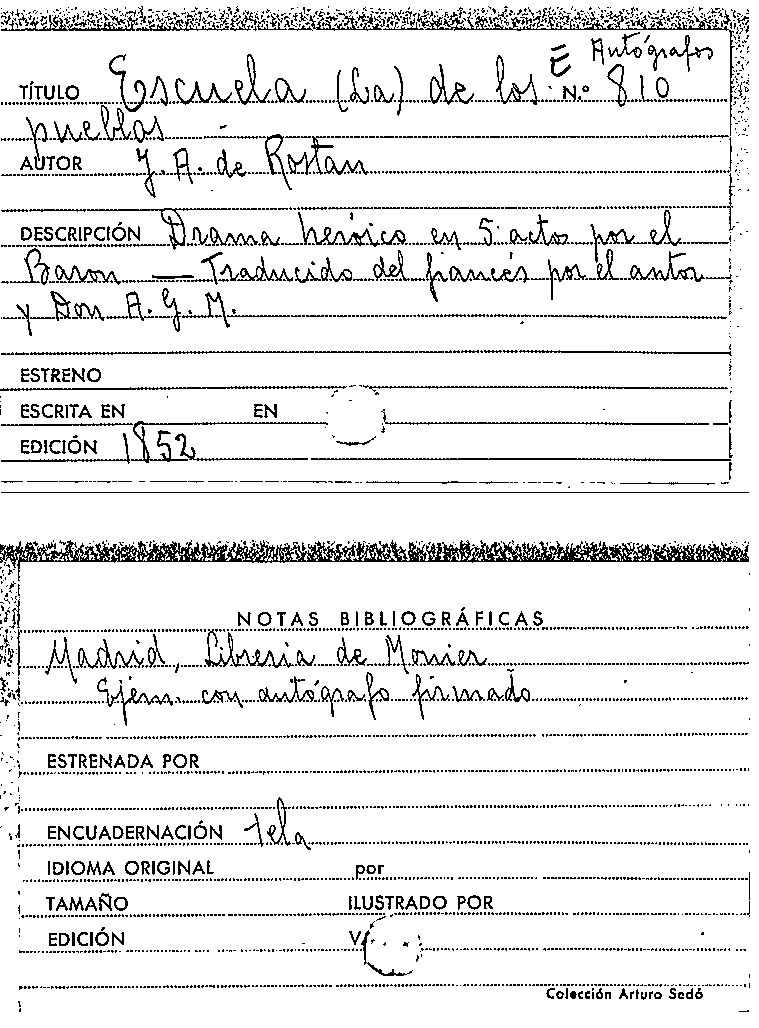 E Autógrafos
TÍTULO Escuela (La) de los N.º 810
pueblos
AUTOR J. A. de Rostan
DESCRIPCIÓN Drama heróico en 5 actos por el
Baron — Traducido del francés por el autor
y Don A. G. M.
ESTRENO
ESCRITA EN EN
EDICIÓN 1852
NOTAS BIBLIOGRÁFICAS
Madrid, Libreria de Monier
Ejem. con autógrafo firmado
ESTRENADA POR
ENCUADERNACIÓN tela
IDIOMA ORIGINAL por
TAMAÑO ILUSTRADO POR
EDICIÓN
Colección Arturo Sedó